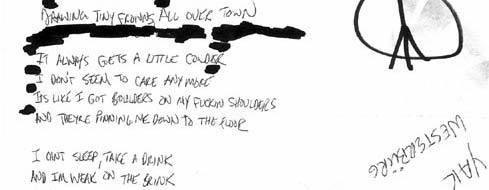 DRAWING TINY FROWNS ALL OVER TOWN
IT ALWAYS GETS A LITTLE COLDER
I DON'T SEEM TO CARE ANYMORE
ITS LIKE I GOT BOULDERS ON MY FUCKIN SHOULDERS
AND THEYRE PINNING ME DOWN TO THE FLOOR
I CANT SLEEP, TAKE A DRINK
AND IM WEAK ON THE BRINK
YAIL
WESTERBURG